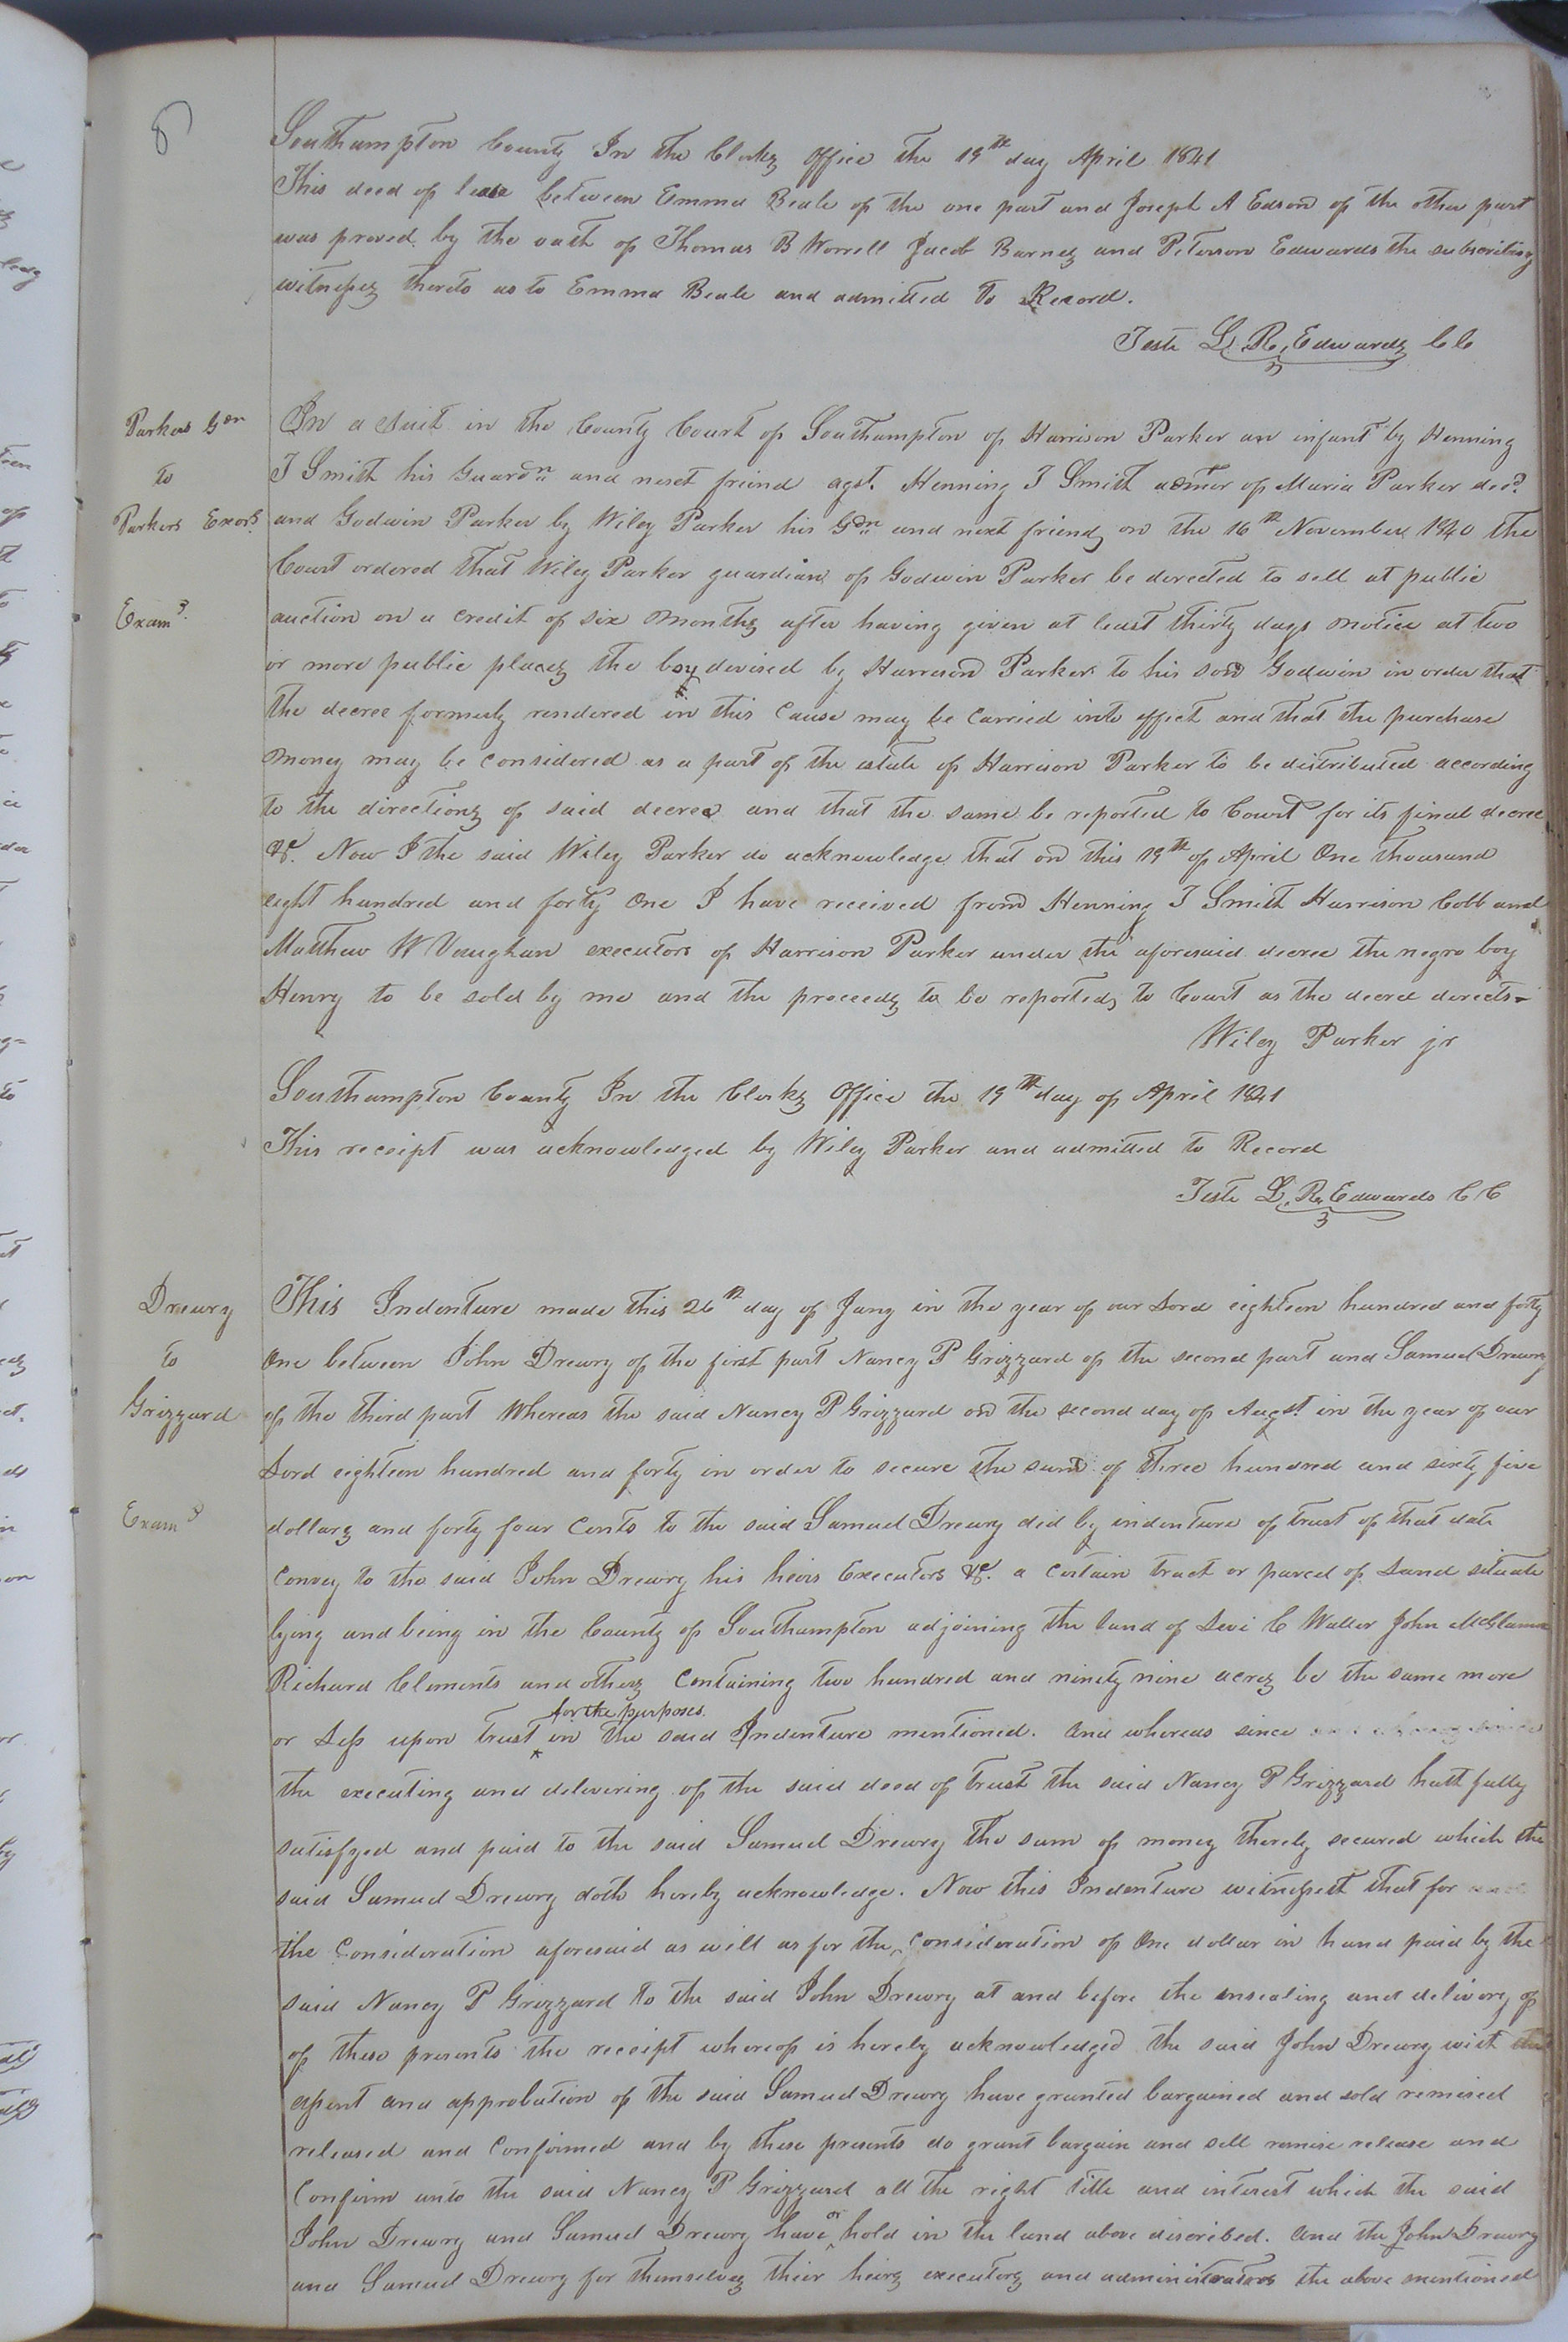 8
Southampton County In the Clerks Office the 19th day April 1841
This deed of lease between Emma Beale of the one part and Joseph A Edson of the other part
was proved by the oath of Thomas B Worrell Jacob Barnes and Peterson Edwards the subscribing
witnesses thereto as to Emma Beale and admitted to Record.
Teste L. R. Edwards CC
Parkers Gdn
to
Parkers Exors.
Examd.
In a Suit in the County Court of Southampton of Harrison Parker an infant by Henning
T Smith his Guardn. and next freind agst. Henning T Smith admor of Maria Parker decd.
and Godwin Parker by Wiley Parker his Gdn. and next friend, on the 16th November 1840 the
Court ordered that Wiley Parker guardian of Godwin Parker be directed to sell at public
auction on a credit of six months after having given at least thirty days notice at two
or more public places the boy devised by Harrison Parker to his son Godwin in order that
the decree formerly rendered in this cause may be carried into effect and that the purchase
money may be considered as a part of the estate of Harrison Parker to be distributed according
to the directions of said decree and that the same be reported to Court for its final decree
&c. Now I the said Wiley Parker do acknowledge that on this 19th of April One thousand
eight hundred and forty One I have received from Henning T Smith Harrison Cobb and
Matthew W Vaughan executors of Harrison Parker under the aforesaid decree the negro boy
Henry to be sold by me and the proceeds to be reported, to Court as the decree directs-
Wiley Parker jr
Southampton County In the Clerks Office the 19th day of April 1841
This receipt was acknowledged by Wiley Parker and admitted to Record
Teste L. R. Edwards CC
Drewry
to
Grizzard
Examd
This Indenture made this 26th day of Jany in the year of our Lord eighteen hundred and forty
One between John Drewry of the first part Nancy P Grizzard of the second part and Samuel Drewry
of the third part Whereas the said Nancy P Grizzard on the second day of Augst. in the year of our
Lord eighteen hundred and forty in order to secure the sum of three hundred and sixty five
dollars and forty four cents to the said Samuel Drewry did by indenture of trust of that date
convey to the said John Drewry his heirs Executors &c. a certain tract or parcel of Land situate
lying and being in the County of Southampton adjoining the land of Levi C Waller John
Richard Clements and others Containing two hundred and ninety nine acres be the same more
or Less upon trust for the purposes in the said Indenture mentioned. And whereas since
the executing and delivering of the said deed of Trust the said Nancy P Grizzard hath fully
satisfyed and paid to the said Samuel Drewry the sum of money thereby secured which the
said Samuel Drewry doth hereby acknowledge. Now this Indenture witnesseth that for
the Consideration aforesaid as well as for the consideration of One dollar in hand paid by the
said Nancy P Grizzard to the said John Drewry at and before the ensealing and delivery of
of these presents the receipt whereof is hereby acknowledged the said John Drewry with the
assent and approbation of the said Samuel Drewry have granted bargained and sold remised
released and Confirmed and by these presents do grant bargain and sell remise release and
Confirm unto the said Nancy P Grizzard all the right title and interest which the said
John Drewry and Samuel Drewry have or hold in the land above discribed. And the John Drewry
and Samuel Drewry for themselves their heirs executors and administrators the above mentioned